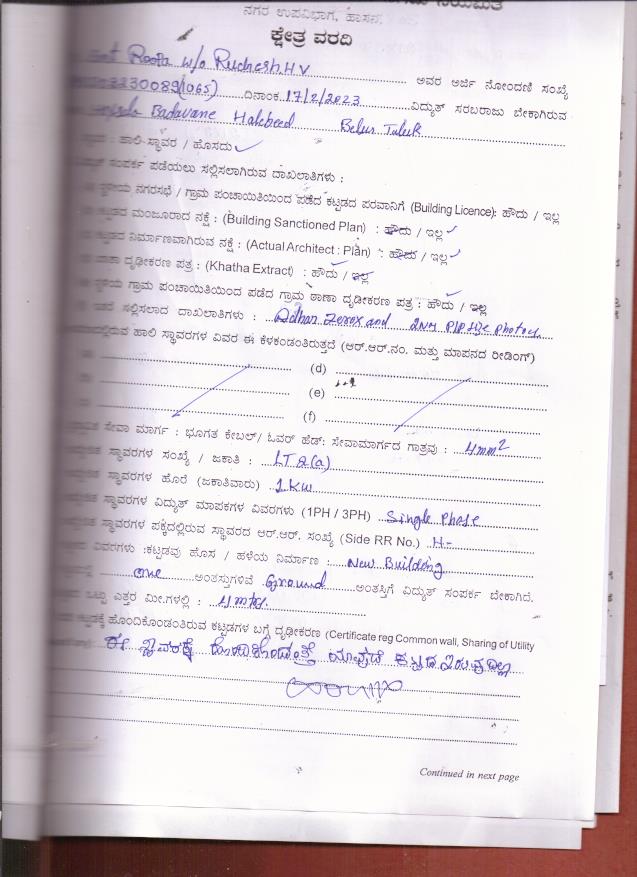 ನಗರ ಉಪವಿಭಾಗ, ಹಾಸನ.
ಕ್ಷೇತ್ರ ವರದಿ
Roopa w/o Rudresh.H.V ಅವರ ಅರ್ಜಿ ನೋಂದಣಿ ಸಂಖ್ಯೆ
3230089(1065) ದಿನಾಂಕ 17/2/2023 ವಿದ್ಯುತ್ ಸರಬರಾಜು ಬೇಕಾಗಿರುವ
Badavane Halebeed Belur Taluk
ಹಾಲಿ ಸ್ಥಾವರ / ಹೊಸದು
ಸಂಪರ್ಕ ಪಡೆಯಲು ಸಲ್ಲಿಸಲಾಗಿರುವ ದಾಖಲಾತಿಗಳು :
ನಗರಸಭೆ / ಗ್ರಾಮ ಪಂಚಾಯಿತಿಯಿಂದ ಪಡೆದ ಕಟ್ಟಡದ ಪರವಾನಿಗೆ (Building Licence): ಹೌದು / ಇಲ್ಲ
ಮಂಜೂರಾದ ನಕ್ಷೆ : (Building Sanctioned Plan) : ಹೌದು / ಇಲ್ಲ
ಕಟ್ಟಡದ ನಿರ್ಮಾಣವಾಗಿರುವ ನಕ್ಷೆ : (Actual Architect : Plan) : ಹೌದು / ಇಲ್ಲ
ಖಾತಾ ದೃಢೀಕರಣ ಪತ್ರ : (Khatha Extract) : ಹೌದು / ಇಲ್ಲ
ಗ್ರಾಮ ಪಂಚಾಯಿತಿಯಿಂದ ಪಡೆದ ಗ್ರಾಮ ಠಾಣಾ ದೃಢೀಕರಣ ಪತ್ರ : ಹೌದು / ಇಲ್ಲ
ಇತರೆ ಸಲ್ಲಿಸಲಾದ ದಾಖಲಾತಿಗಳು : Adhar Zerox and 2No P/P Size photos.
ಹಾಲಿ ಸ್ಥಾವರಗಳ ವಿವರ ಈ ಕೆಳಕಂಡಂತಿರುತ್ತದೆ (ಆರ್.ಆರ್.ನಂ. ಮತ್ತು ಮಾಪನದ ರೀಡಿಂಗ್)
(d)
(e)
(f)
ಸೇವಾ ಮಾರ್ಗ : ಭೂಗತ ಕೇಬಲ್/ ಓವರ್ ಹೆಡ್: ಸೇವಾಮಾರ್ಗದ ಗಾತ್ರವು : 4mm²
ಸ್ಥಾವರಗಳ ಸಂಖ್ಯೆ / ಜಕಾತಿ : LT 2(a)
ಸ್ಥಾವರಗಳ ಹೊರೆ (ಜಕಾತಿವಾರು) 1 KW
ಸ್ಥಾವರಗಳ ವಿದ್ಯುತ್ ಮಾಪಕಗಳ ವಿವರಗಳು (1PH / 3PH) Single Phase
ಸ್ಥಾವರಗಳ ಪಕ್ಕದಲ್ಲಿರುವ ಸ್ಥಾವರದ ಆರ್.ಆರ್. ಸಂಖ್ಯೆ (Side RR No.) H-
ವಿವರಗಳು :ಕಟ್ಟಡವು ಹೊಸ / ಹಳೆಯ ನಿರ್ಮಾಣ : New Building
one ಅಂತಸ್ತುಗಳಿವೆ Ground ಅಂತಸ್ತಿಗೆ ವಿದ್ಯುತ್ ಸಂಪರ್ಕ ಬೇಕಾಗಿದೆ.
ಒಟ್ಟು ಎತ್ತರ ಮೀ.ಗಳಲ್ಲಿ : 4 mtrs.
ಕಟ್ಟಡಕ್ಕೆ ಹೊಂದಿಕೊಂಡಂತಿರುವ ಕಟ್ಟಡಗಳ ಬಗ್ಗೆ ದೃಢೀಕರಣ (Certificate reg Common wall, Sharing of Utility
ಈ ಸ್ಥಾವರಕ್ಕೆ ಹೊಂದಿಕೊಂಡಂತೆ ಯಾವುದೆ ಕಟ್ಟಡ ಇರುವುದಿಲ್ಲ
Continued in next page